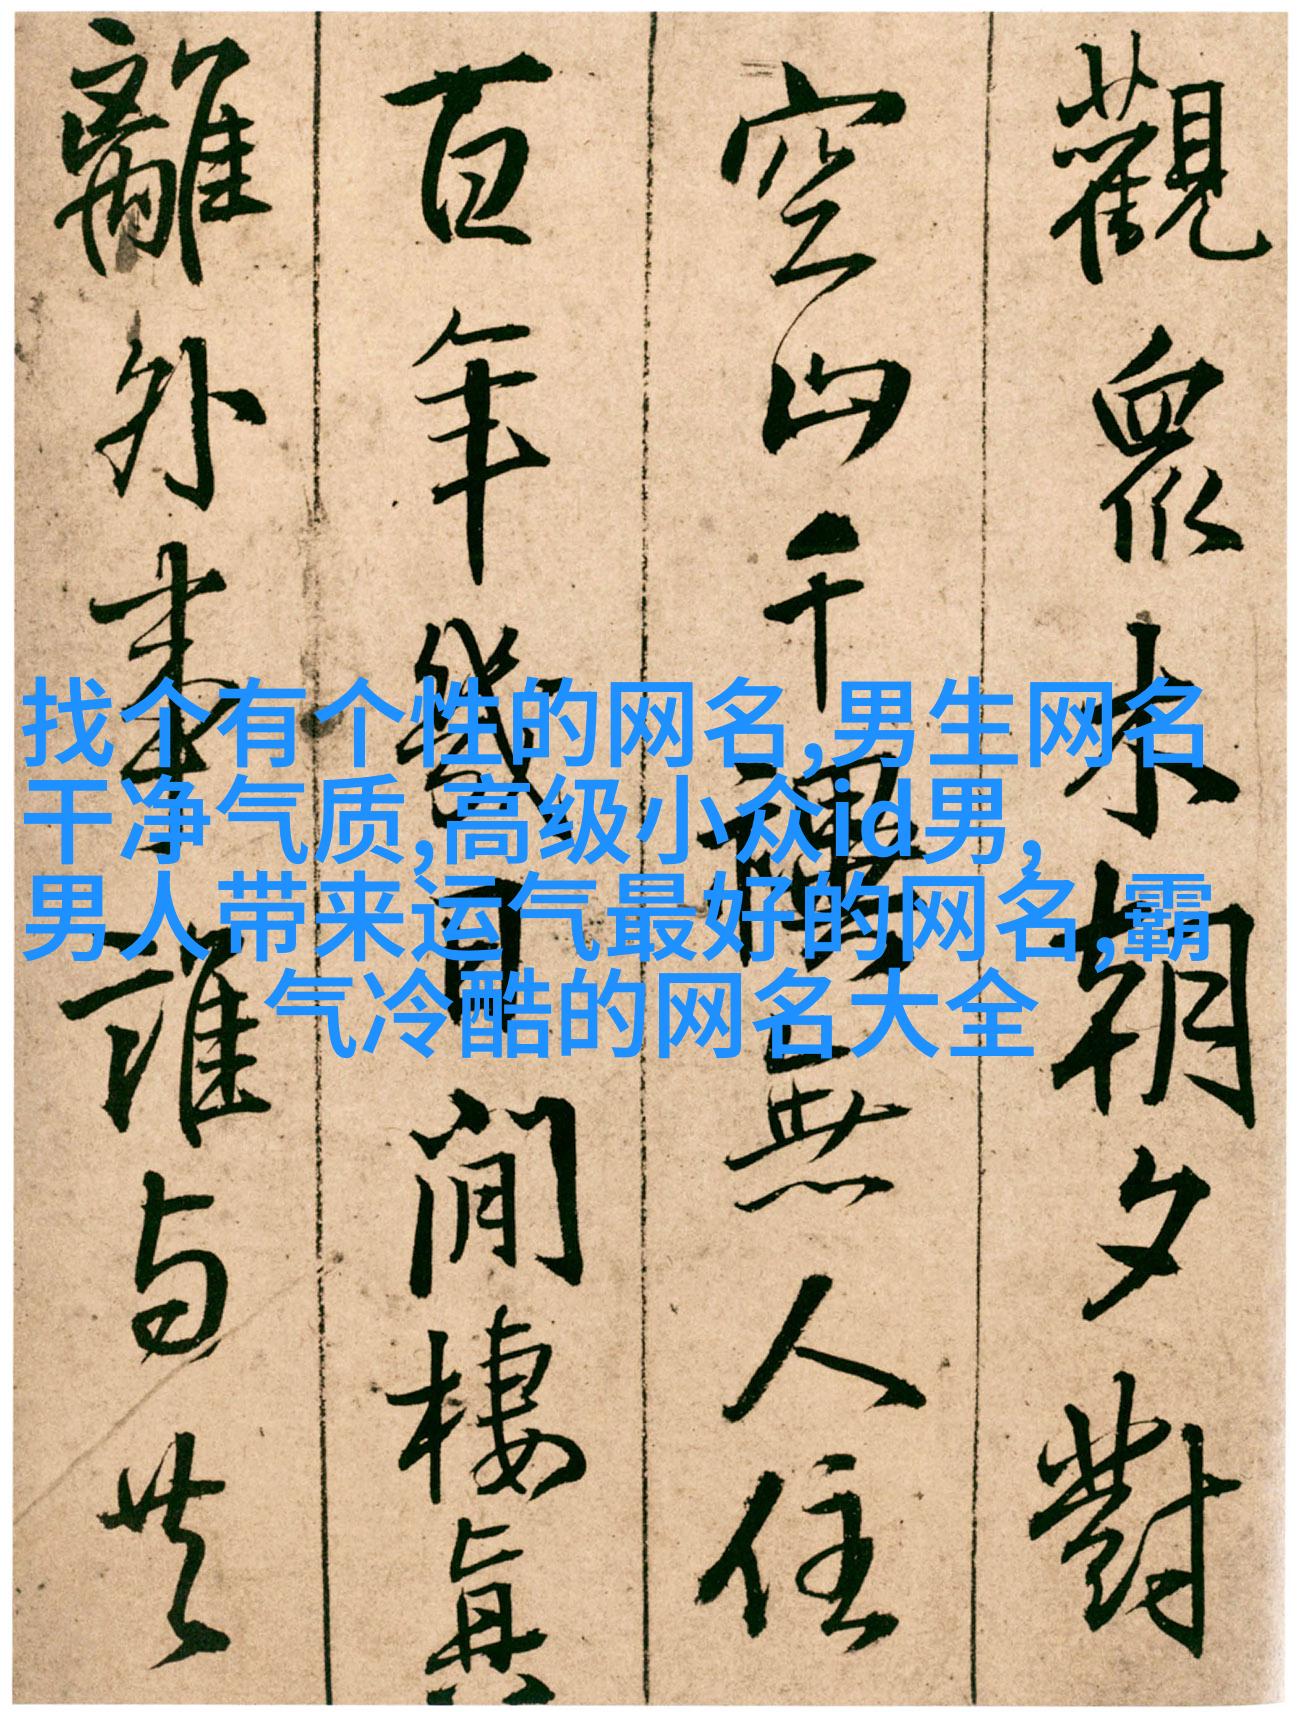 觀眾木朝夕對
空山千無人住
百年幾日閒棲真
離外誰与共
找个有个性的网名,男生网名
干净气质,高级小众id男,
男人带来运气最好的网名,霸
气冷酷的网名大全